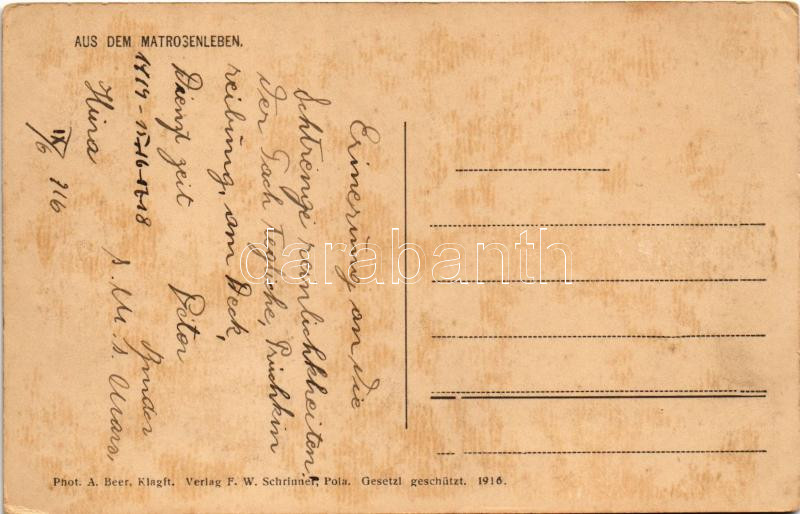 AUS DEM MATROSENLEBEN.
Erinerung an die
Schtrenge reinlichkheiten.
der Tach tegliche,
reibung, am Deck,
Dienzt zeit
1914-15-16-17-18
Peter
Bruder
Hiera
S. M. S. Mars,
IX/6 916
carabanth
Phot. A. Beer, Klagft. Verlag F. W. Schrinner, Pola. Gesetzl geschützt. 1916.